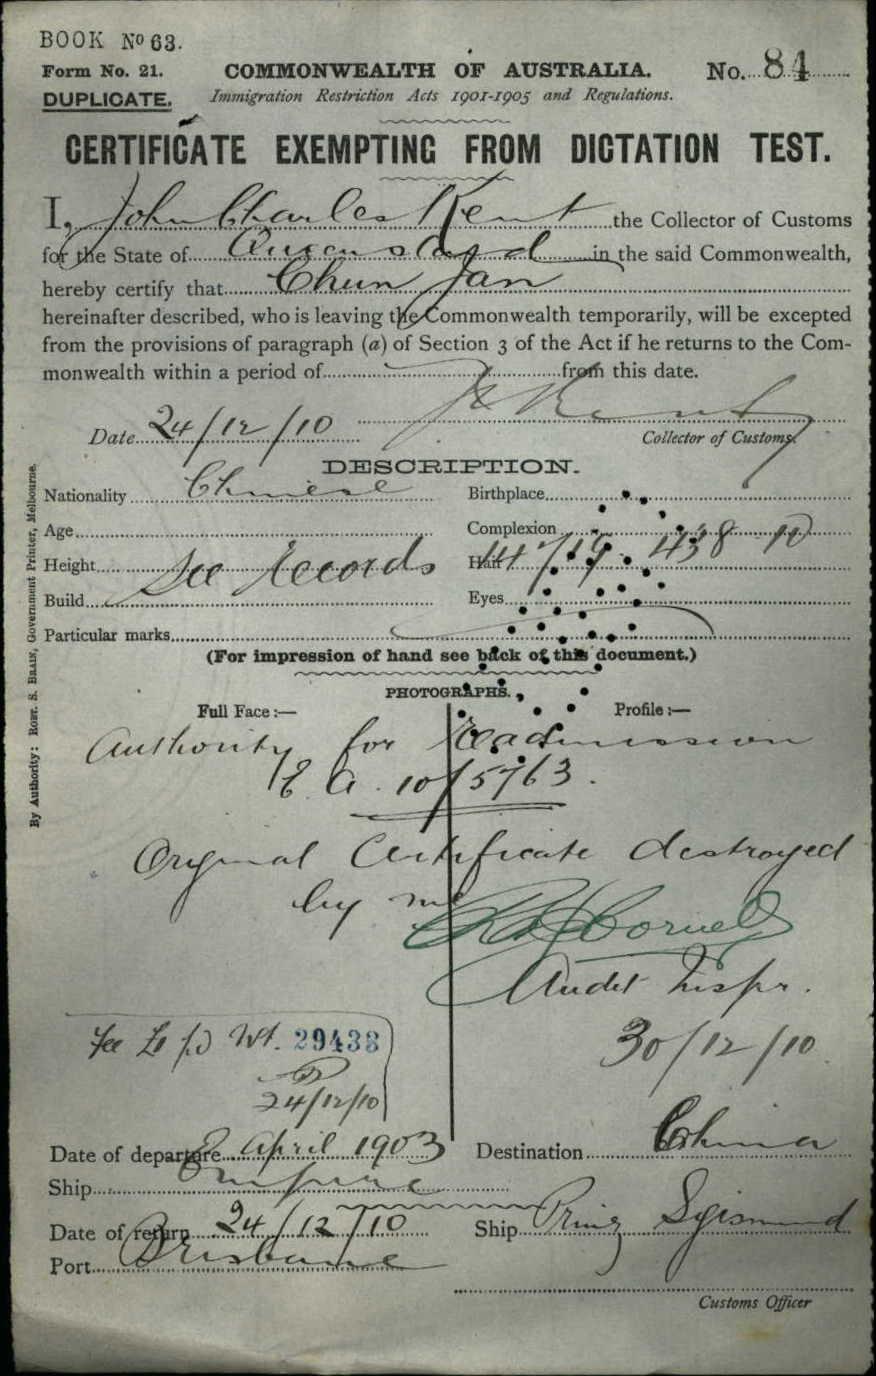 BOOK No 63.
Form No. 21. COMMONWEALTH OF AUSTRALIA. No. 84
DUPLICATE. Immigration Restriction Acts 1901-1905 and Regulations.
CERTIFICATE EXEMPTING FROM DICTATION TEST.
I, John Charles Kent the Collector of Customs
for the State of Queensland in the said Commonwealth,
hereby certify that Chun Jan
hereinafter described, who is leaving the Commonwealth temporarily, will be excepted
from the provisions of paragraph (a) of Section 3 of the Act if he returns to the Com-
monwealth within a period of from this date.
Date 24/12/10 Kent
Collector of Customs.
DESCRIPTION.
Nationality Chinese Birthplace
Age Complexion
Height See Records Hair 14719 438
Build Eyes
Particular marks
(For impression of hand see back of this document.)
PHOTOGRAPHS.
Full Face :— Profile :—
Authority for Readmission
E. A. 10/5763.
Original Certificate destroyed
by me
Cornell
Audit Inspr.
30/12/10
Fee £1 pd 29438
24/12/10
Date of departure April 1903 Destination China
Ship Empire
Date of return 24/12/10 Ship Prinz Sigismund
Port Brisbane
Customs Officer
By Authority: ROBT. S. BRAIN, Government Printer, Melbourne.